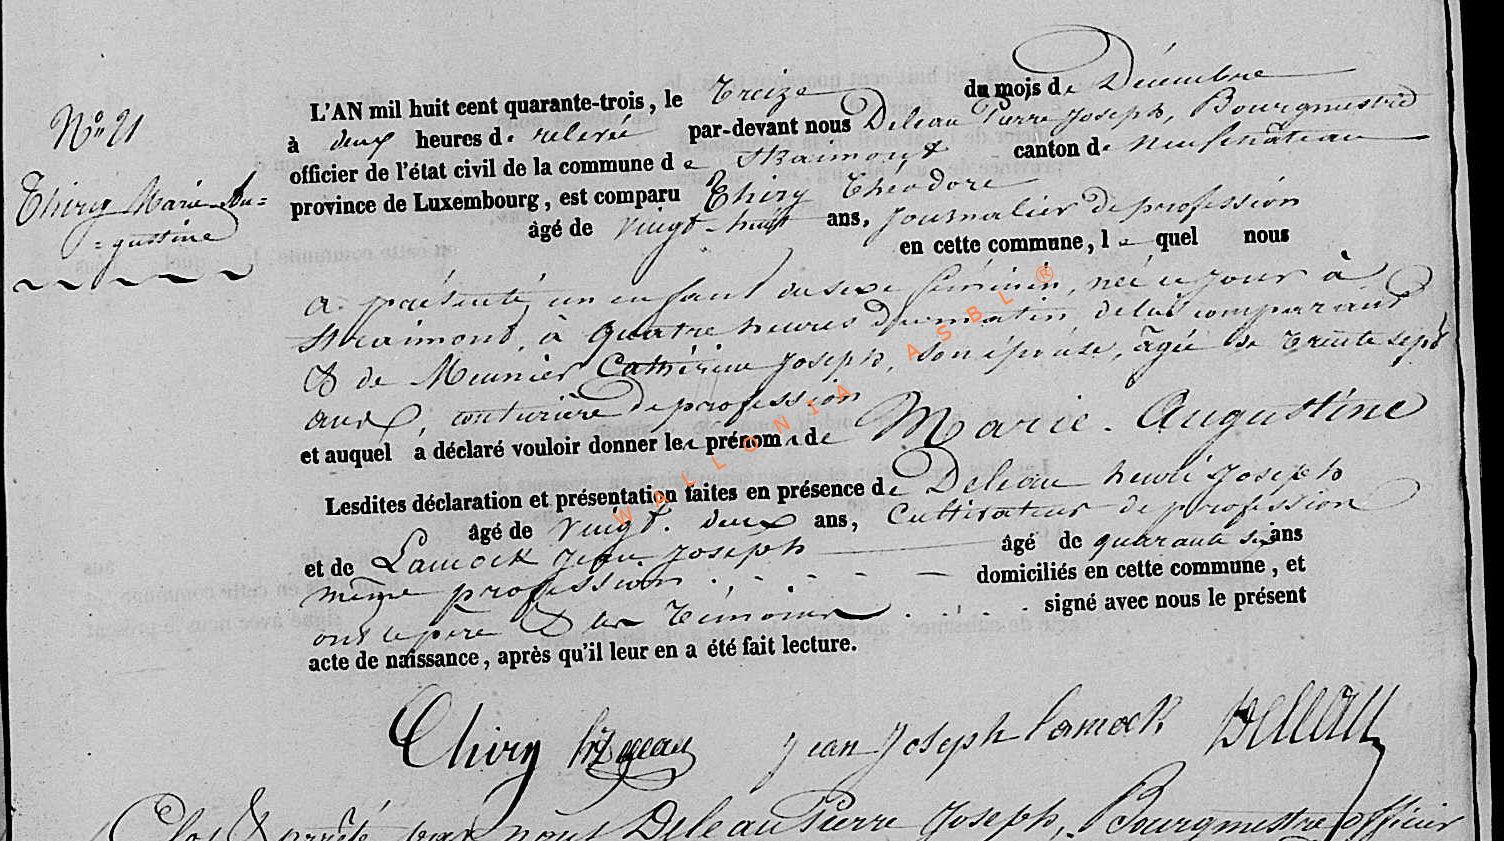 N° 21
Thiry Marie Au=
=gustine
L'AN mil huit cent quarante-trois, le Treize du mois de Décembre
à deux heures de relevée par-devant nous Deleau Pierre Joseph, Bourgmestre
officier de l'état civil de la commune de Straimont canton de neufchateau
province de Luxembourg, est comparu Thiry Théodore
âgé de vingt-huit ans, Journalier de profession
en cette commune, lequel nous
a présenté un enfant du sexe féminin, née ce jour à
Straimont, à quatre heures du matin, de lui comparant
& de Meunier Catherine Joseph, son épouse, âgée de trente sept
ans, couturière de profession
et auquel a déclaré vouloir donner les prénoms de Marie-Augustine
Lesdites déclaration et présentation faites en présence de Deleau henri Joseph
âgé de vingt-deux ans, Cultivateur de profession
et de Lamock Jean Joseph âgé de quarante six ans
même profession domiciliés en cette commune, et
ont le père & les témoins signé avec nous le présent
acte de naissance, après qu'il leur en a été fait lecture.
Thiry hDeleau Jean Joseph lamock Deleau
Clos & arrêté par nous Deleau Pierre Joseph, Bourgmestre officier
WALLONIA ASBL ®